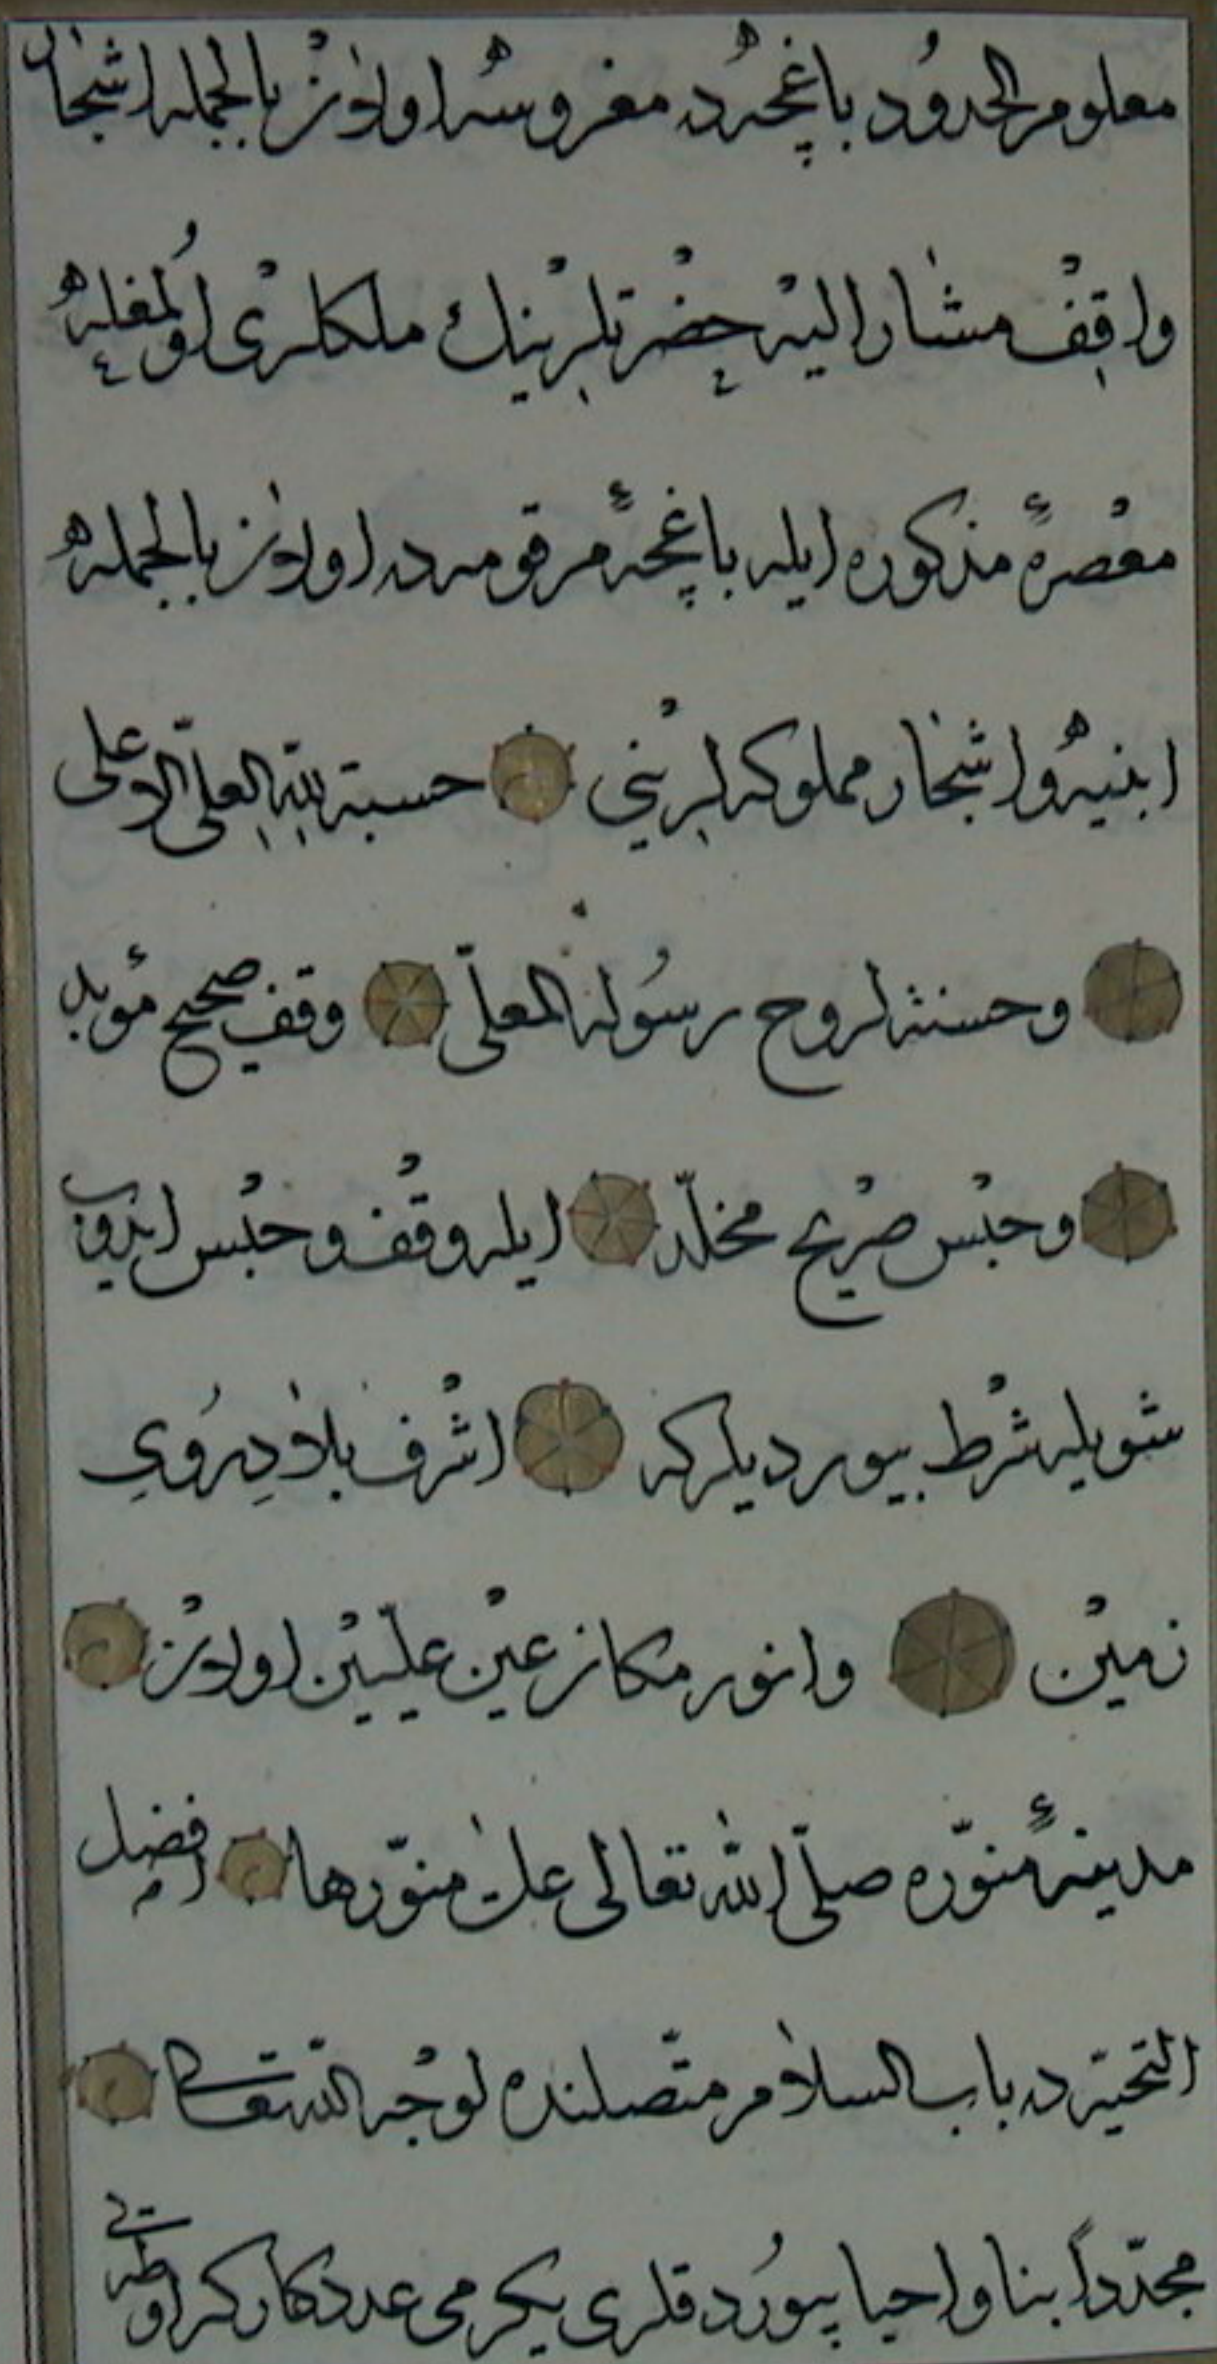 معلوم الحدود باغچه‌ده مغروسه اولان بالجمله اشجار
واقف مشار اليه حضرتلرينك ملكلرى اولمغله
معصرهٔ مذكوره ايله باغچهٔ مرقومه‌ده اولان بالجمله
ابنيه و اشجار مملوكه‌لرينى حسبة لله العلى الاعلى
وحسنة لروح رسوله المعلّى وقف صحيح مؤبد
وحبس صريح مخلّد ايله وقف وحبس ايدوب
شويله شرط بيورديلركه اشرف بلاد روى
زمين وانور مكان عين علّيين اولان
مدينهٔ منوّره صلّى الله تعالى على منوّرها افضل
التحيّه‌ده باب السلام متّصلنده لوجه الله تعالى
مجدّداً بنا و احيا بيوردقلرى يكرمى عدد كاركير اوطه‌نى